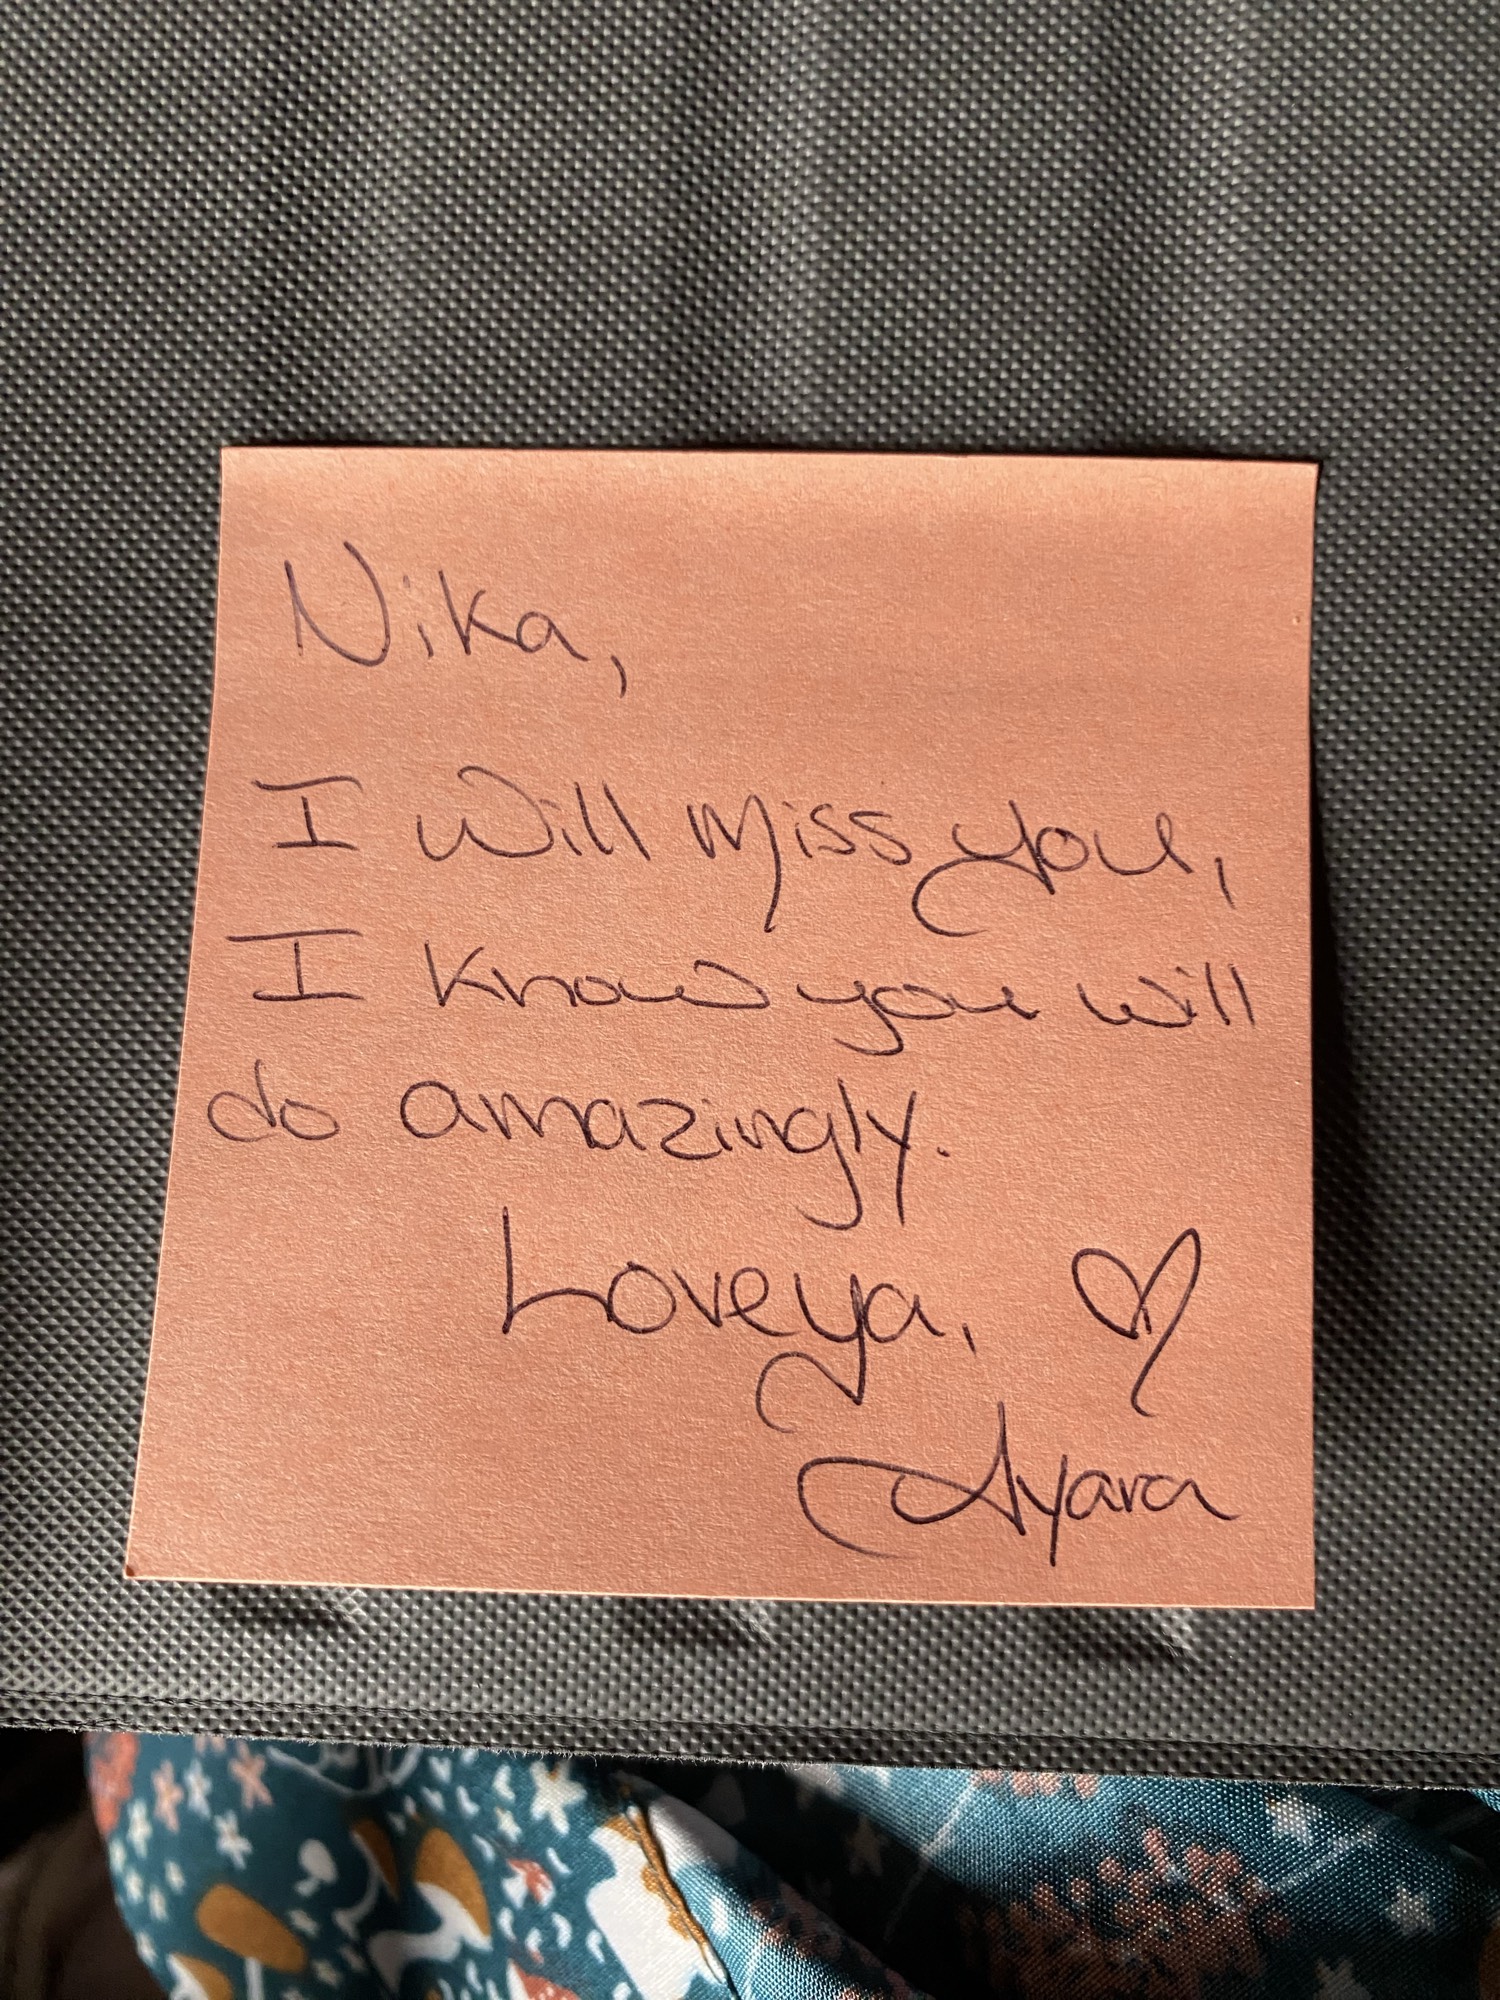 Nika,
I will miss you,
I know you will
do amazingly.
Love ya, ♡
Ayara